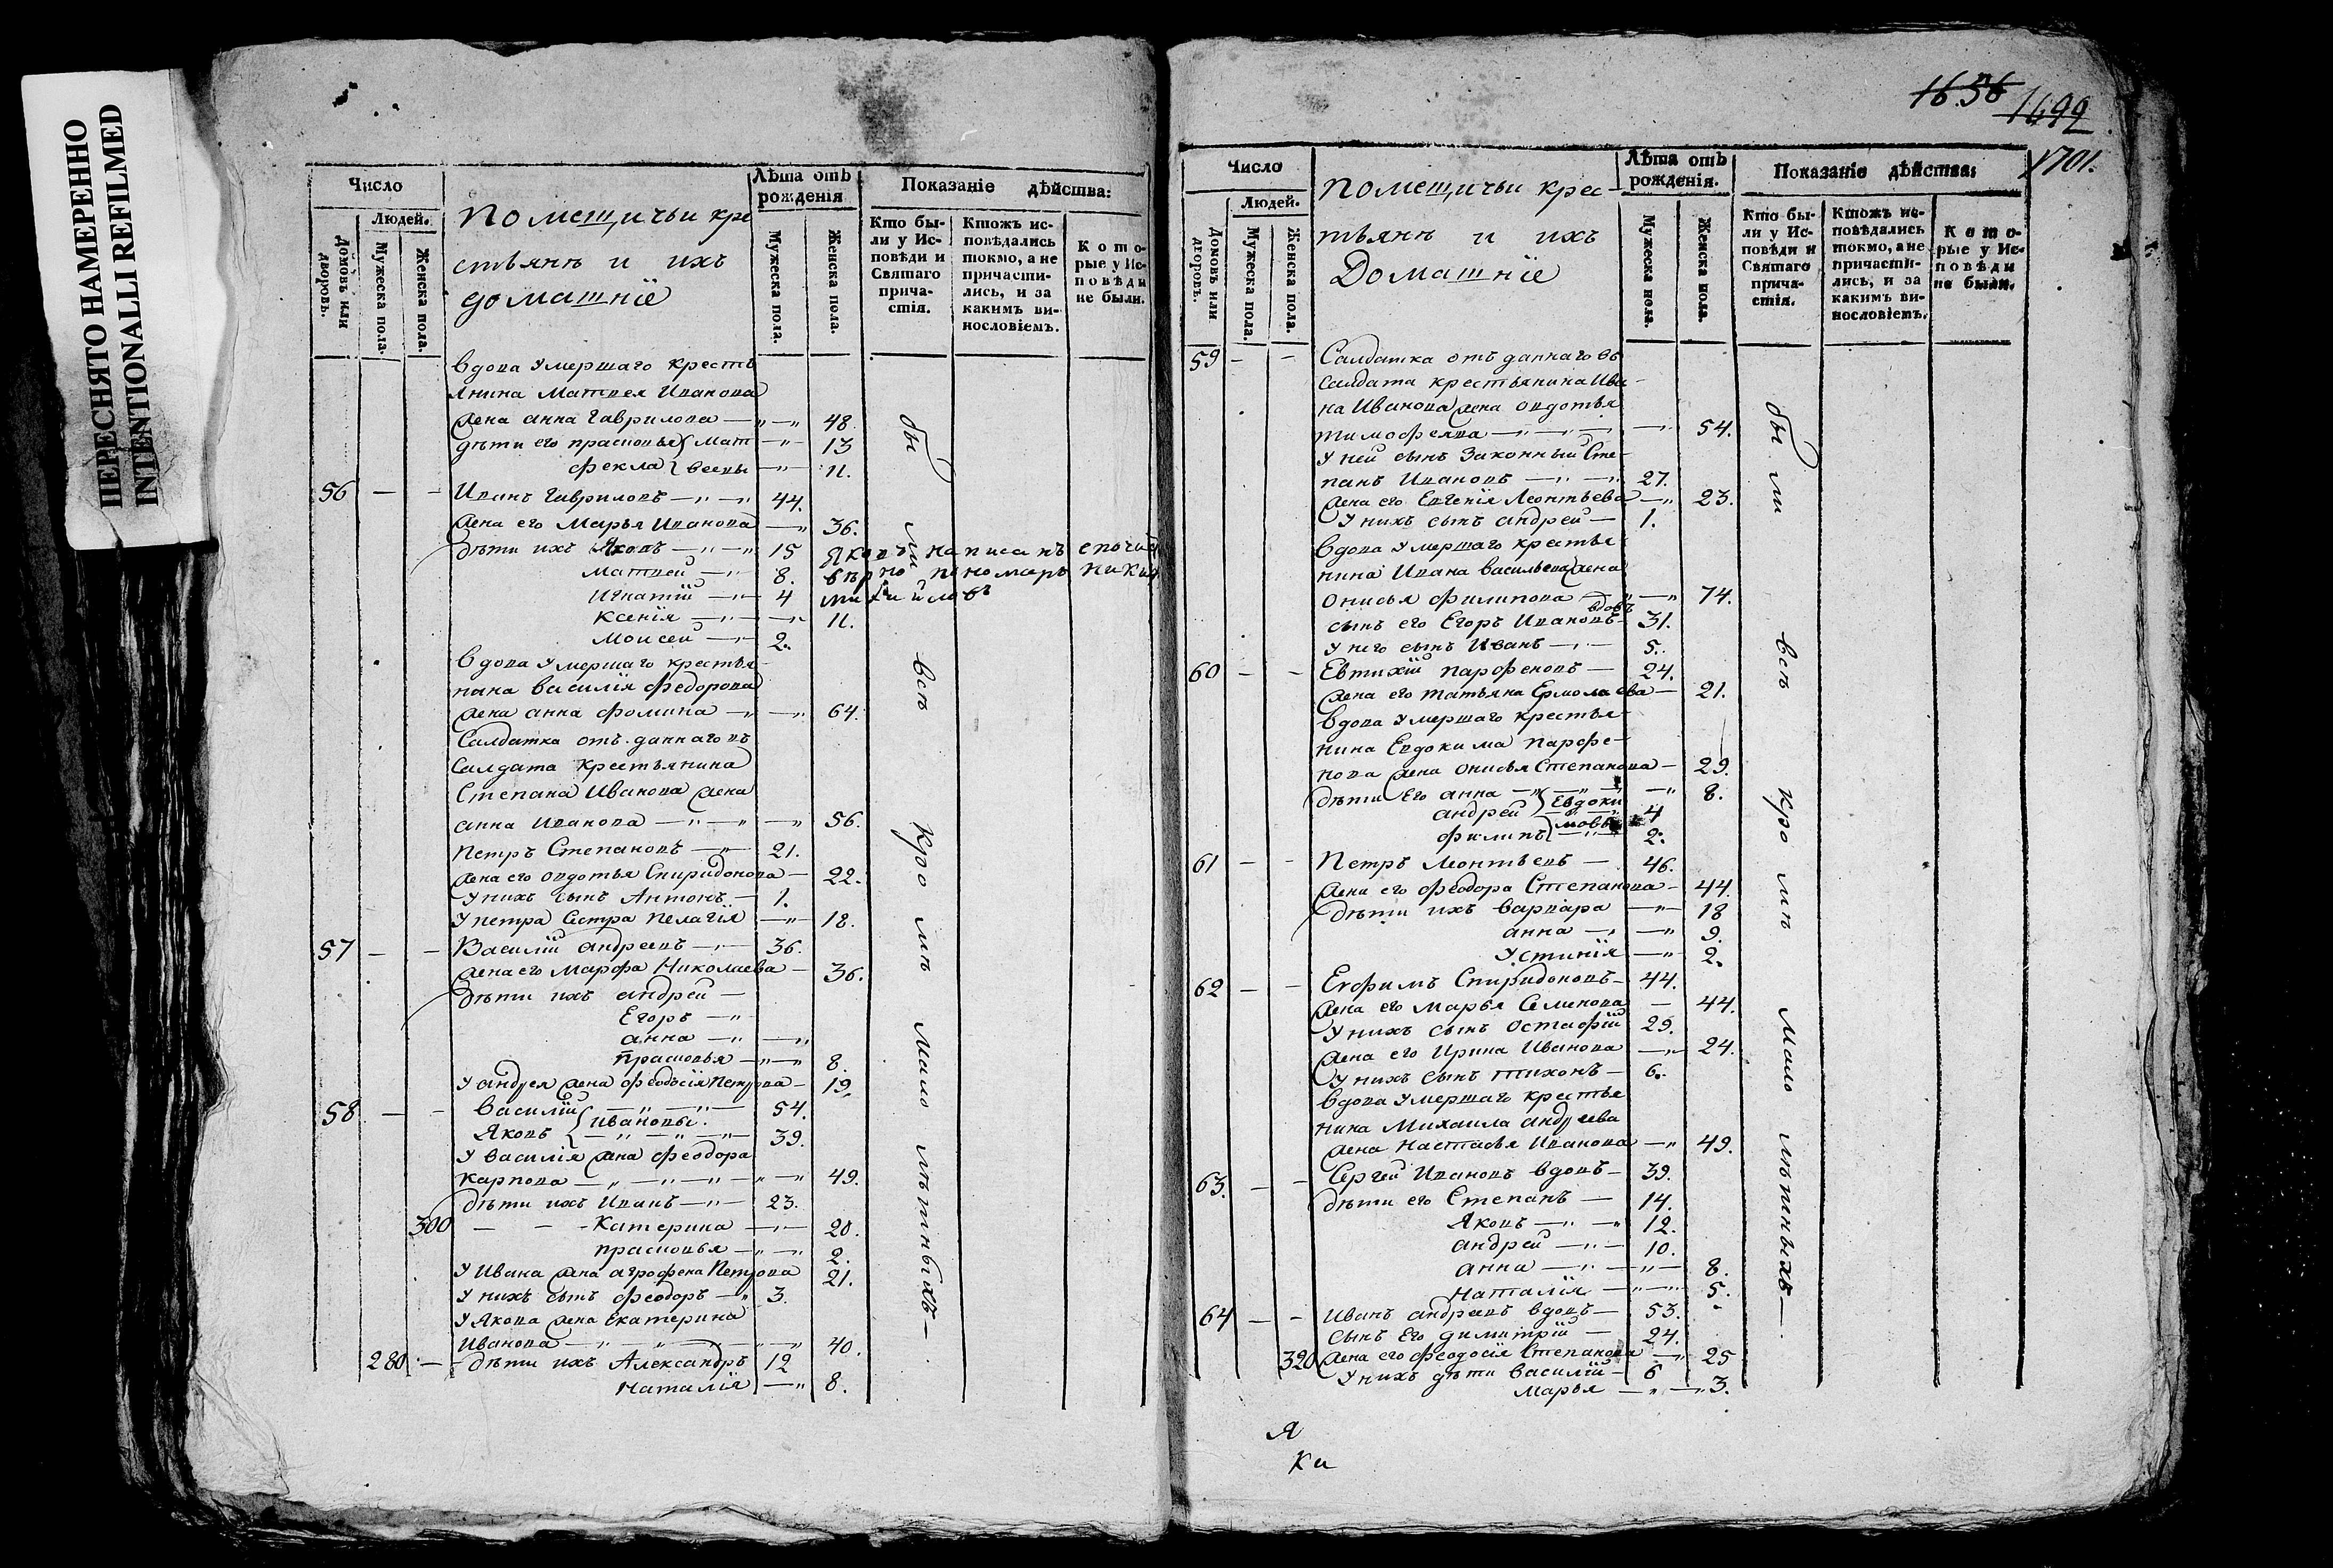 ПЕРЕСНЯТО НАМЕРЕННО
INTENTIONALLI REFILMED
Число
Людей.
Домовъ или дворовъ.
Мужеска пола.
Женска пола.
Помещичьи кре
стьянъ и ихъ
домашніе
Лѣта отъ рожденія
Мужеска пола.
Женска пола.
Показаніе дѣйства:
Кто бы-
ли у Ис-
повѣди и
Святаго
прича-
стія.
Ктожъ ис-
повѣдались
токмо, а не
причасти-
лись, и за
какимъ ви-
нословіемъ.
Кото-
рые у Ис-
повѣди
не были.
вдова умершаго кресть
янина Матвея Иванова
жена анна Гаврилова — 48.
дѣти его прасковья } Мат 13
фекла } веевы 11.
56 — — Иванъ Гавриловъ — 44.
жена его Марья Иванова — 36.
дѣти ихъ Яковъ — 15 Яковъ написанъ
Матвей — 8. вѣрно пономарь
Игнатій — 4 михайловъ
Ксенія — 11.
Моисей — 2.
вдова умершаго крестья
нина василія федорова
жена анна фомина — 64.
Салдатка отъ данаго въ
Салдата Крестьянина
Степана Иванова жена
анна Иванова — 56.
Петръ Степановъ — 21.
жена его овдотья Спиридонова — 22.
У нихъ сынъ Антонъ — 1.
У петра Сестра пелагія — 18.
57 — — Василій андреевъ — 36.
жена его Марфа Николаева — 36.
дѣти ихъ андрей —
Егоръ —
анна —
прасковья — 8.
У андрея жена феодосія Петрова — 19.
58 — — Василій } Ивановы. 54.
Яковъ } 39.
У василія жена феодора
карпова — 49.
дѣти ихъ Иванъ — 23.
300 — — Катерина — 20.
прасковья — 2.
У Ивана жена агрофена Петрова 21.
У нихъ сынъ феодоръ — 3.
У Якова жена Екатерина
Иванова — 40.
280 — дѣти ихъ Александръ 12
Наталія — 8.
бы ли всѣ кро мѣ мало лѣтныхъ —
1656
1699
1701.
Число
Людей.
Домовъ или дворовъ.
Мужеска пола.
Женска пола.
помещичьи крес-
тьянъ и ихъ
Домашніе
Лѣта отъ рожденія.
Мужеска пола.
Женска пола.
Показаніе дѣйства:
Кто бы-
ли у Ис-
повѣди и
Святаго
прича-
стія.
Ктожъ ис-
повѣдались
токмо, а не
причасти-
лись, и за
какимъ ви-
нословіемъ.
Кото-
рые у Ис-
повѣди
не были.
59 — — Салдатка отъ даннаго въ
Салдата крестьянина Ива-
на Иванова жена овдотья
тимофеева — 54.
У ней сынъ Законный Сте-
панъ Ивановъ — 27.
жена его Евгенія Леонтьева — 23.
У нихъ сынъ андрей — 1.
вдова умершаго крестья
нина Ивана васильева жена
Онисья филипова — 74.
вдовъ
сынъ его Егоръ Ивановъ — 31.
У него сынъ Иванъ — 5.
60 — — Евтихій парфеновъ — 24.
жена его татьяна Ермолаева — 21.
вдова умершаго крестья-
нина Евдокима парфе-
нова жена онисья Степанова — 29.
дѣти Его анна — 8.
андрей } Евдоки 4
филипъ } мовы 2.
61 — — Петръ Леонтьевъ — 46.
жена его феодора Степанова — 44.
дѣти ихъ варвара — 18
анна — 9.
Устинія — 2.
62 — — Ефимъ Спиридоновъ — 44.
жена его марья Семенова — 44.
У нихъ сынъ Остафій 29.
жена его Ирина Иванова — 24.
У нихъ Сынъ тихонъ — 6.
вдова умершаго крестья
нина Михаила андреева
жена Настасья Иванова — 49.
63. — — Сергей Ивановъ вдовъ — 39.
дѣти его Степанъ — 14.
Яковъ — 12.
андрей — 10.
анна — 8.
Наталія — 5.
64 — — Иванъ андреевъ вдовъ — 53.
сынъ Его димитрій — 24.
320 жена его феодосія Степанова — 25
У нихъ дѣти василій — 6
Марья — 3.
бы ли всѣ кро мѣ мало лѣтныхъ —
Я
Ки